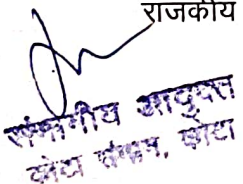 राजकीय
संभागीय आयुक्त
कोटा संभाग, कोटा